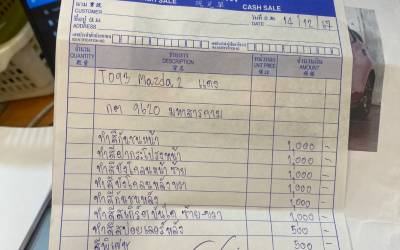 CASH SALE
นาม
CUSTOMER
ที่อยู่
ADDRESS
วันที่
DATE 14/12/67
จำนวน
QUANTITY
รายการ
DESCRIPTION
หน่วยละ
UNIT PRICE
จำนวนเงิน
AMOUNT
T093 Mazda 2 แดง
กต 9620 มหาสารคาม
ทำสีกันชนหน้า 1,000 -
ทำสีฝากระโปรงหน้า 1,000 -
ทำสีบังโคลนหน้าซ้าย 1,000 -
ทำสีบังโคลนหลังขวา 1,000 -
ทำสีกันชนหลัง 1,000 -
ทำสีสเกิร์ตบันได ซ้าย-ขวา 1,000 -
ทำสีสปอยเลอร์หลัง 500 -
สีพิเศษ 500 -